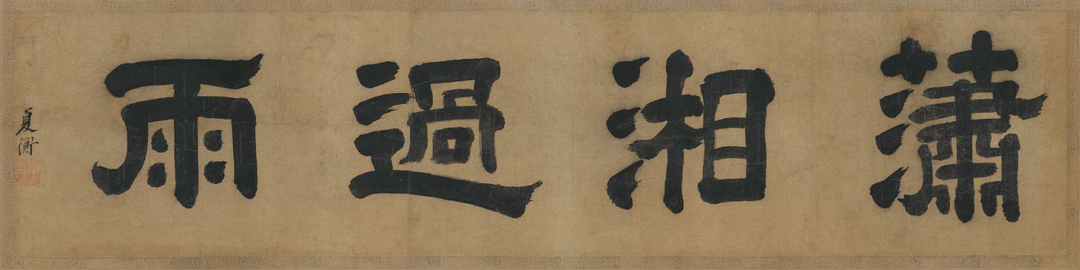 瀟湘過雨
夏衡